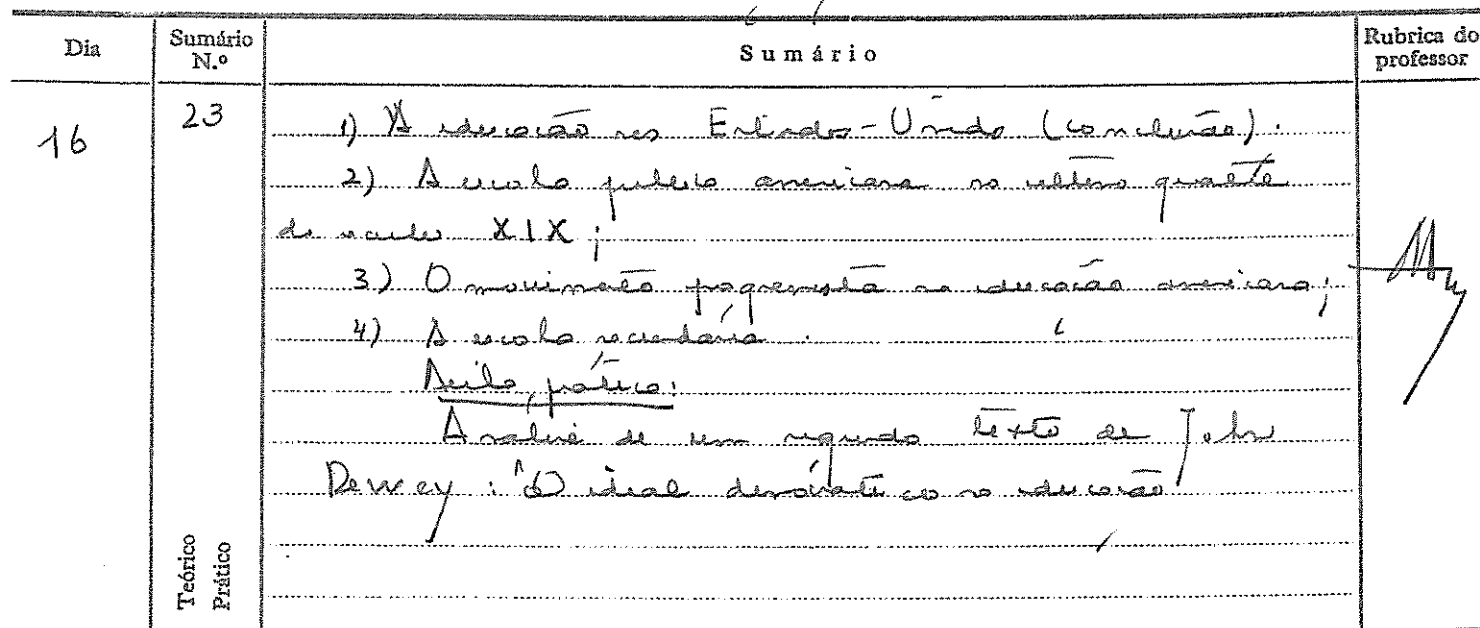 Dia Sumário N.º Sumário Rubrica do professor
16 23 1) A educação nos Estados-Unidos (conclusão).
2) A escola pública americana no último quartel
do século XIX;
3) O movimento progressista na educação americana;
4) A escola secundária.
prática:
Análise de um segundo texto de John
Dewey: "O ideal democrático na educação
Teórico
Prático